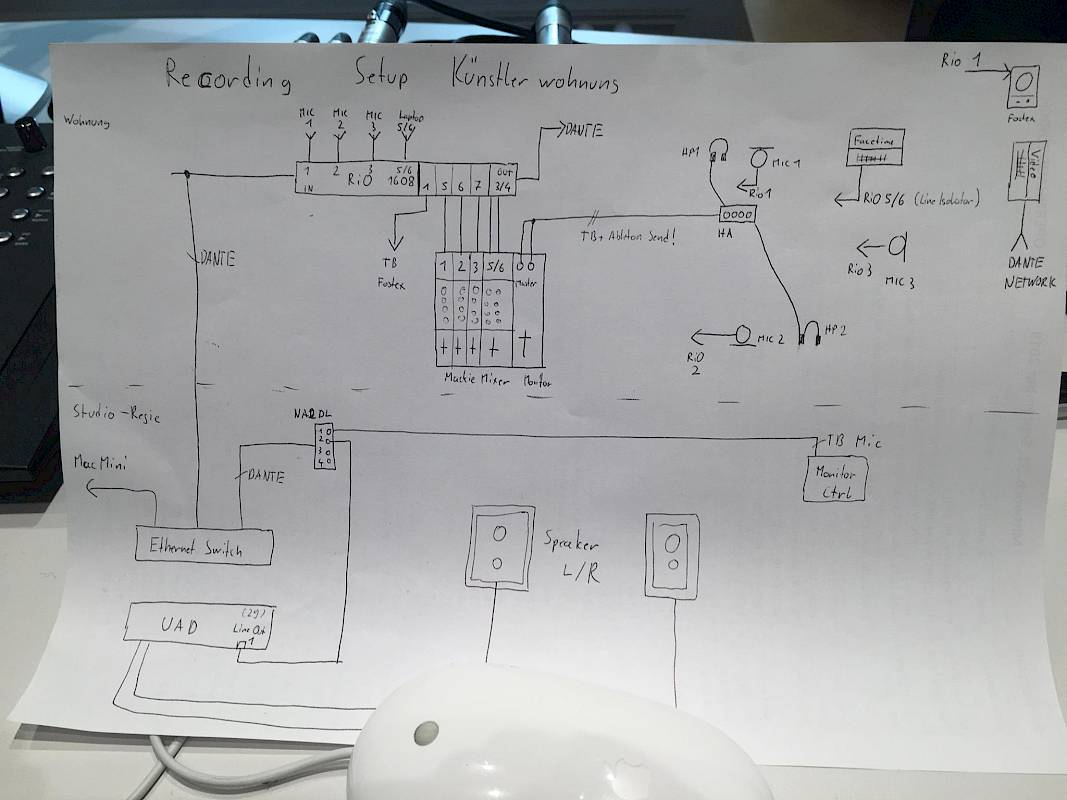 Recording Setup Künstlerwohnung
Rio 1
Fostex
Wohnung
MIC 1
MIC 2
MIC 3
Laptop 5/6
DANTE
1 2 3 5/6
IN RiO 1608
1 5 6 7 OUT 3/4
TB
Fostex
DANTE
1 2 3 5/6
Master
Mackie Mixer Monitor
TB + Ableton Send!
HP1
MIC 1
Rio 1
HA
Facetime
RiO 5/6 (Line Isolator)
Rio 3
MIC 3
Video
DANTE
NETWORK
RiO
2
MIC 2
HP 2
Studio-Regie
1
2
3
4
Mac Mini
DANTE
TB Mic
Monitor
Ctrl
Ethernet Switch
Speaker
L/R
UAD
Line Out
1